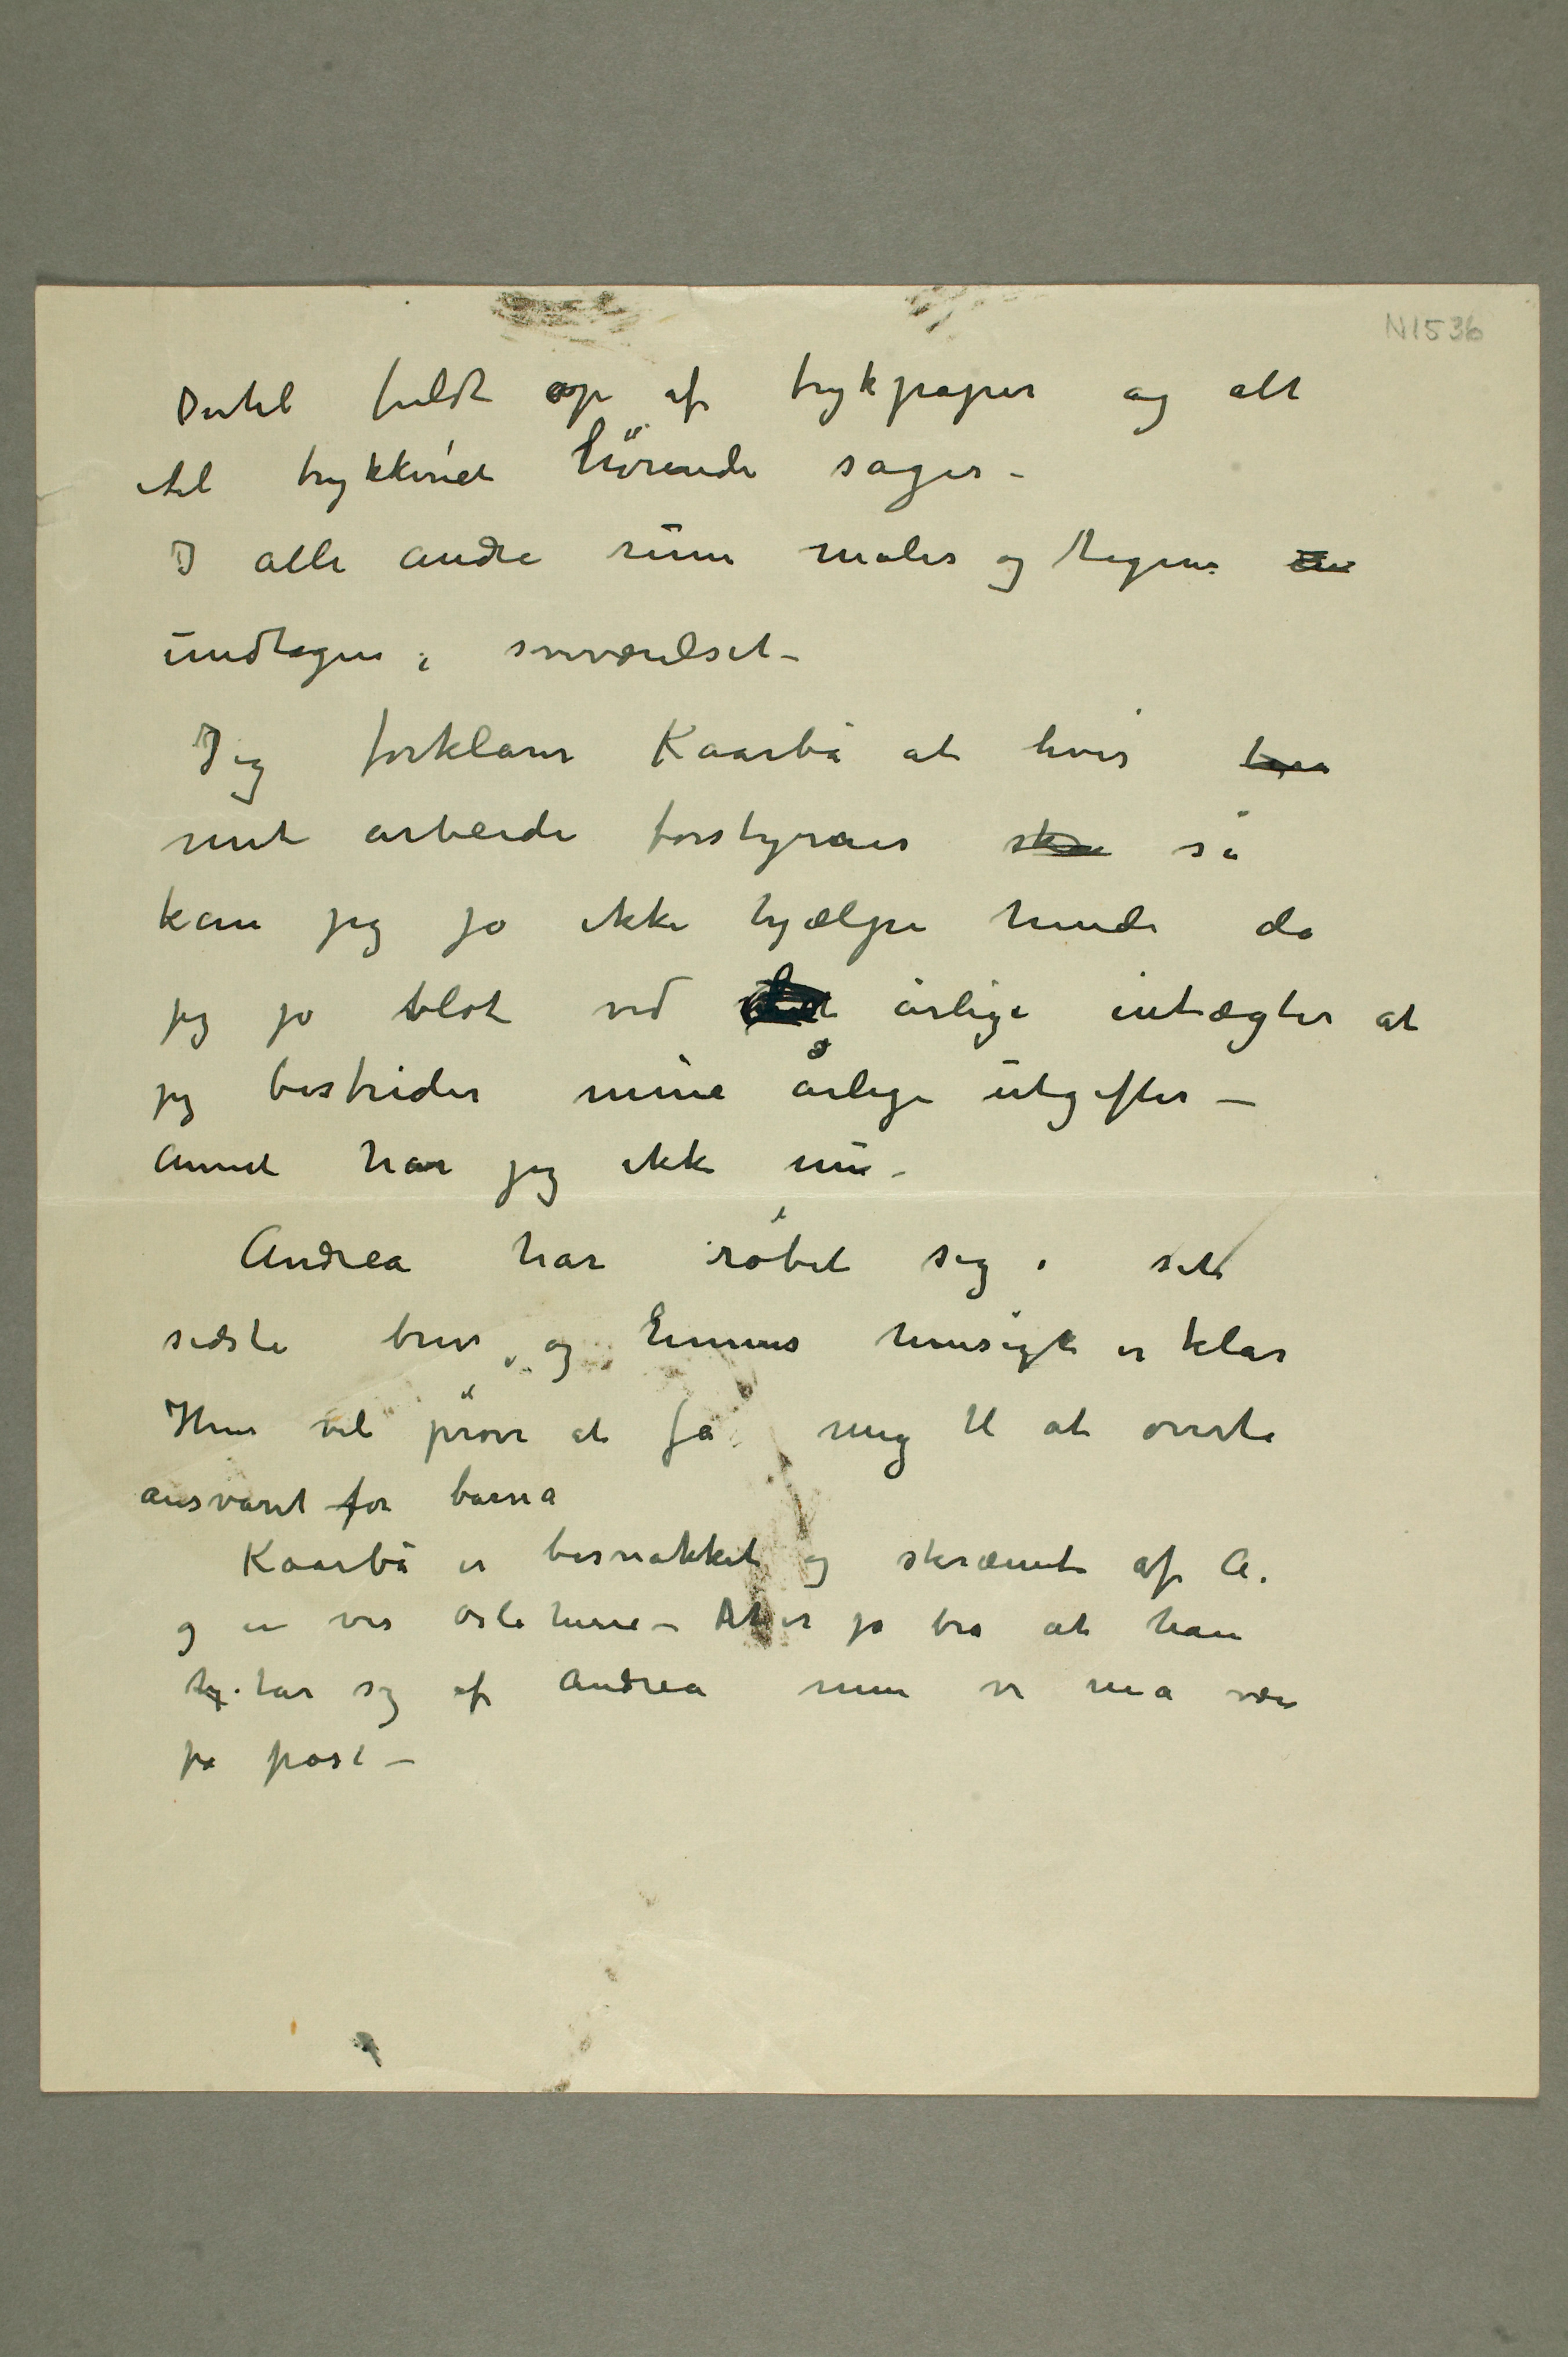 N1536
Dertil fuldt op af trykpapir og alt
til trykkeriet hörende sager –
I alle andre rum males og tegnes
undtagen i soveværelset –
Jeg forklarer Kaarbö at hvis
mit arbeide forstyrres så
kan jeg jo ikke hjælpe hende da
jeg jo blot ved årlige intægter at
jeg bestrider mine årlige utgifter –
Annet har jeg ikke nu –
Andrea har röbet sig i sit
sidste brev, og hennes hensigt er klar
Hun vil pröve at få mig til at overta
ansvaret for barna
Kaarbö er besnakket og skræmt af A.
og en vis Oslo herre – Det er jo bra at han
tar sig af Andrea men vi må være
på post –